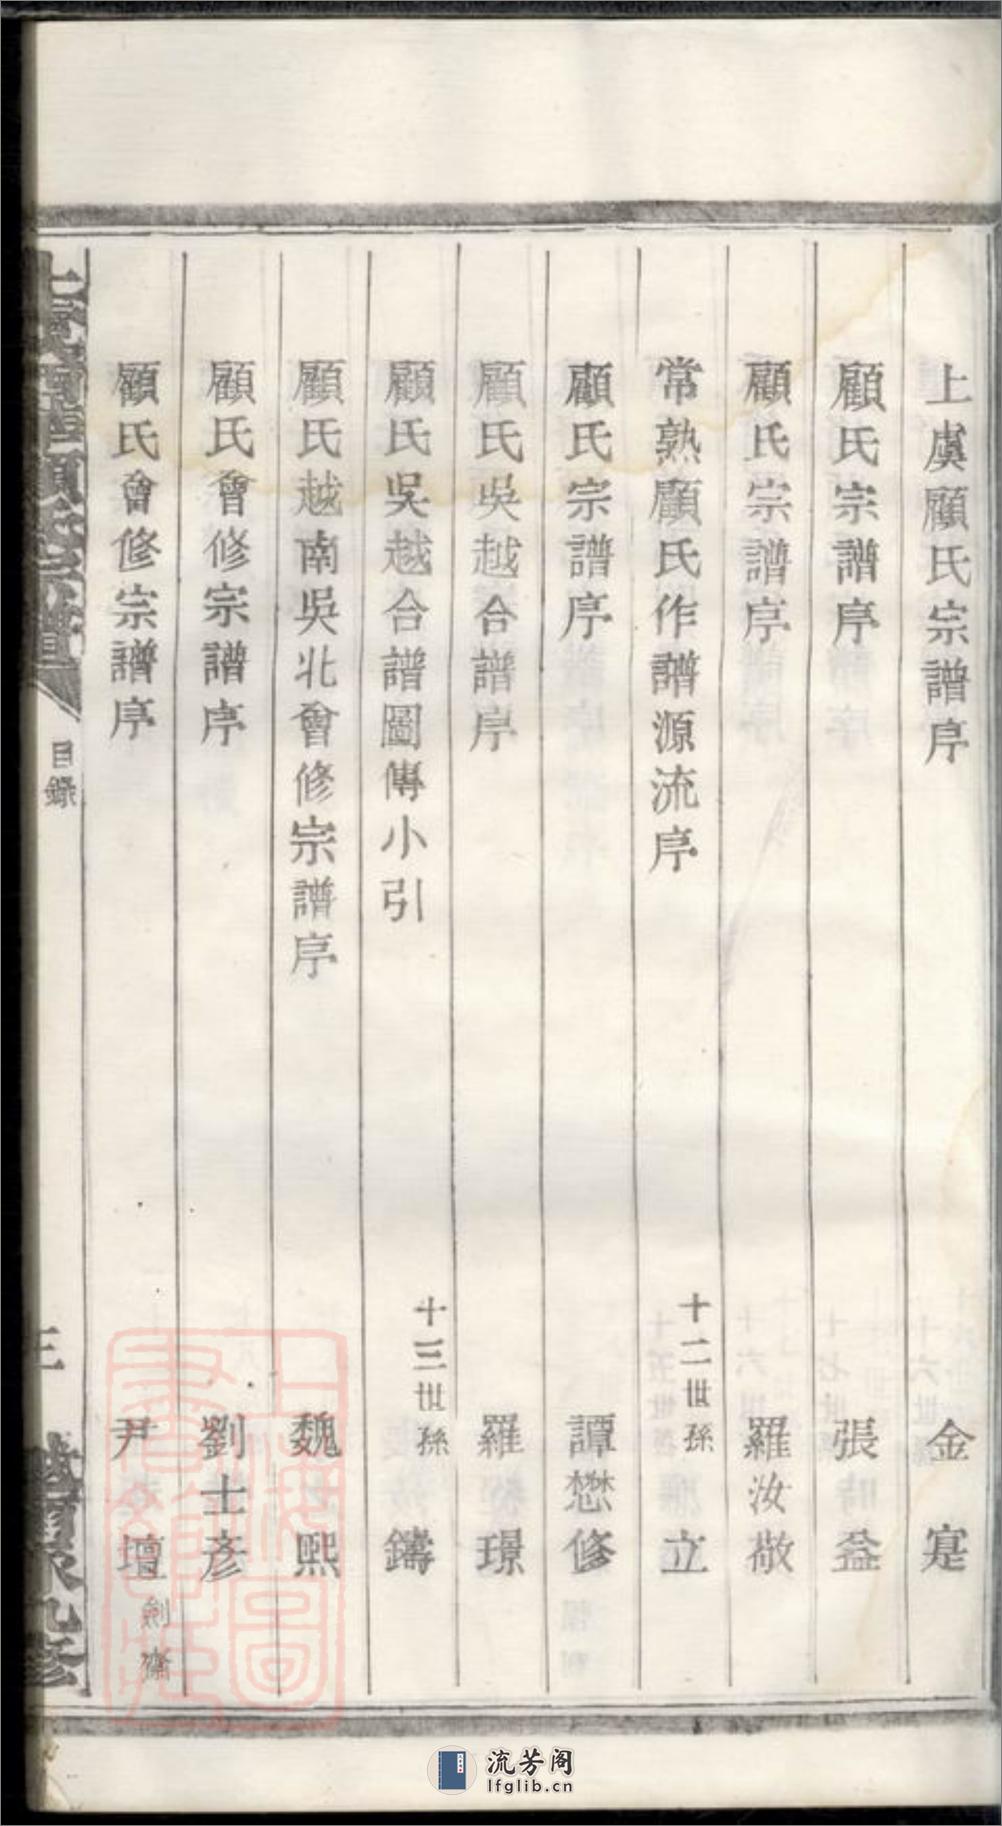 上虞顧氏宗譜序 金寔
顧氏宗譜序 張益
顧氏宗譜序 羅汝敬
常熟顧氏作譜源流序 十二世孫 立
顧氏宗譜序 譚懋修
顧氏吳越合譜序 羅璟
顧氏吳越合譜圖傳小引 十三世孫 鑄
顧氏越南吳北會修宗譜序 魏熙
顧氏會修宗譜序 劉士彥
顧氏會修宗譜序 尹壇劍齋
目錄
三
上海圖書館藏
流芳阁
lfglib.cn